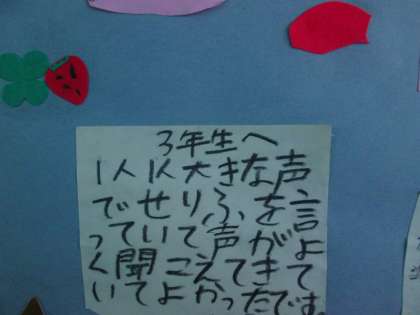 3年生へ
1人1人大きな声
でせりふを言
っていて声がよ
く聞こえてきて
いてよかったです。